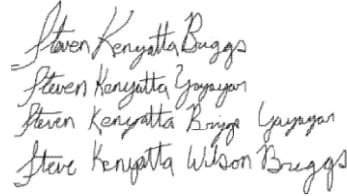 Steven Kenyatta Baggs
Steven Kenyatta Yayayan
Steven Kenyatta Briggs Yayayan
Steve Kenyatta Wilson Breggs